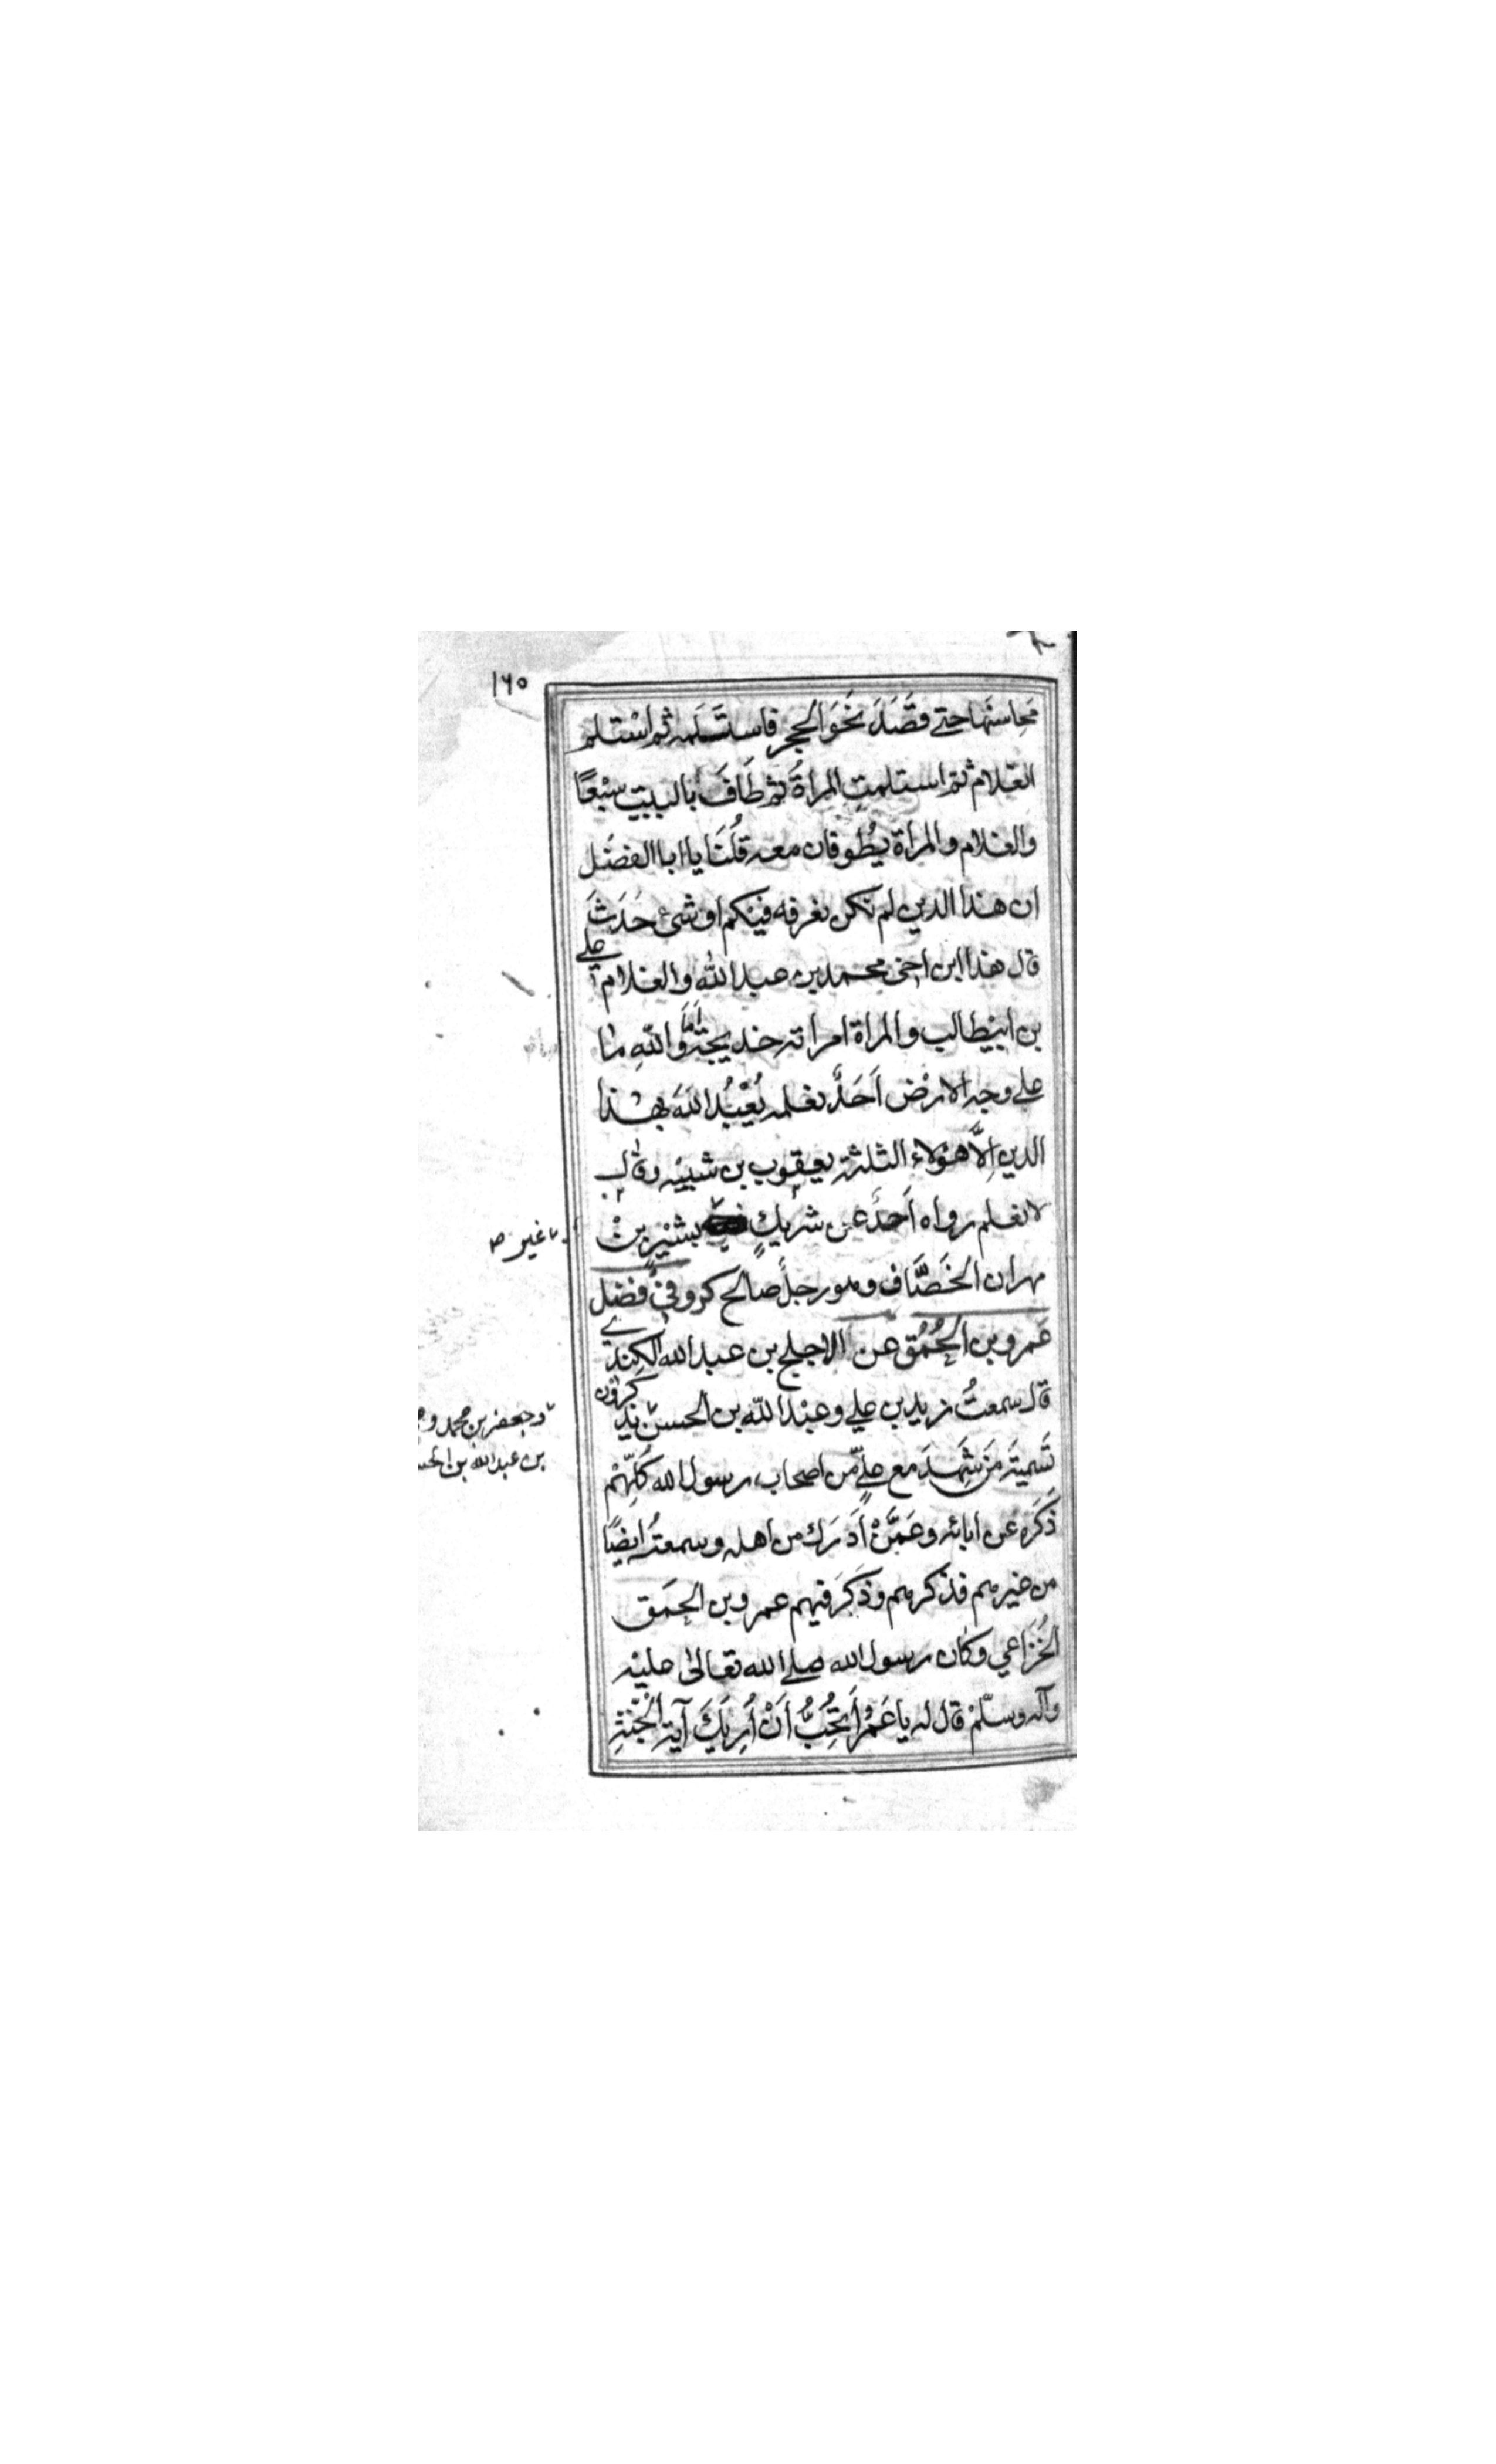 ١٦٥
مَحاسنَها حتے قَصَدَ نَحْوَ الحجر فاستَلمه ثم اسْتلم
الغلام ثم استلمتِ المراةُ ثم طَافَ بالبيتِ سَبْعًا
والغلام والمراة يطُوفان معه قُلْنَا يا ابا الفضْل
ان هذا الدين لم نكن نعرفه فيْكم او شیء حَدَثَ
قال هذا ابن اخی محمد بن عبد الله والغلام علے
بن ابيطالب والمراة امراته خديجة أمَا واللهِ ما
علے وجه الارْض اَحَدٌ نعلمه يَعْبُدُ اللهَ بهذا
الدين اِلَّا هؤلاء الثلثة يعقوب بن شيبه وقال
لا نعلم رواه اَحَدٌ عن شريكٍ بشير بن
غير ص
مهران الخَصَّاف وهو رجلٌ صالح كر وفی فَضْل
عَمرو بن الحُمُق عن الاجلح بن عبد الله الكِندے
قال سمعتُ زيد بن علے وعبْد اللّه بن الحسن يذكرون
وجعفر بن محمد و
بن عبد الله بن الحس
تَسْميَة مَنْ شَهِدَ مع علےٍّ من اصحاب رسول الله كُلّهُمْ
ذَكَره عن ابائه وعَمَّنْ اَدْرَك من اهله وسمعتُه ايضًا
من غيرهم فذكرهم وذَكَرَ فيهم عمرو بن الحمَق
الخُزَاعي وكان رسول الله صلے الله تعالىٰ عليْه
وآله وسلّمْ قال له يا عَمْرُ اَتُحِبُّ اَنْ اُرِيَكَ آيَةَ الْجَنَّةِ